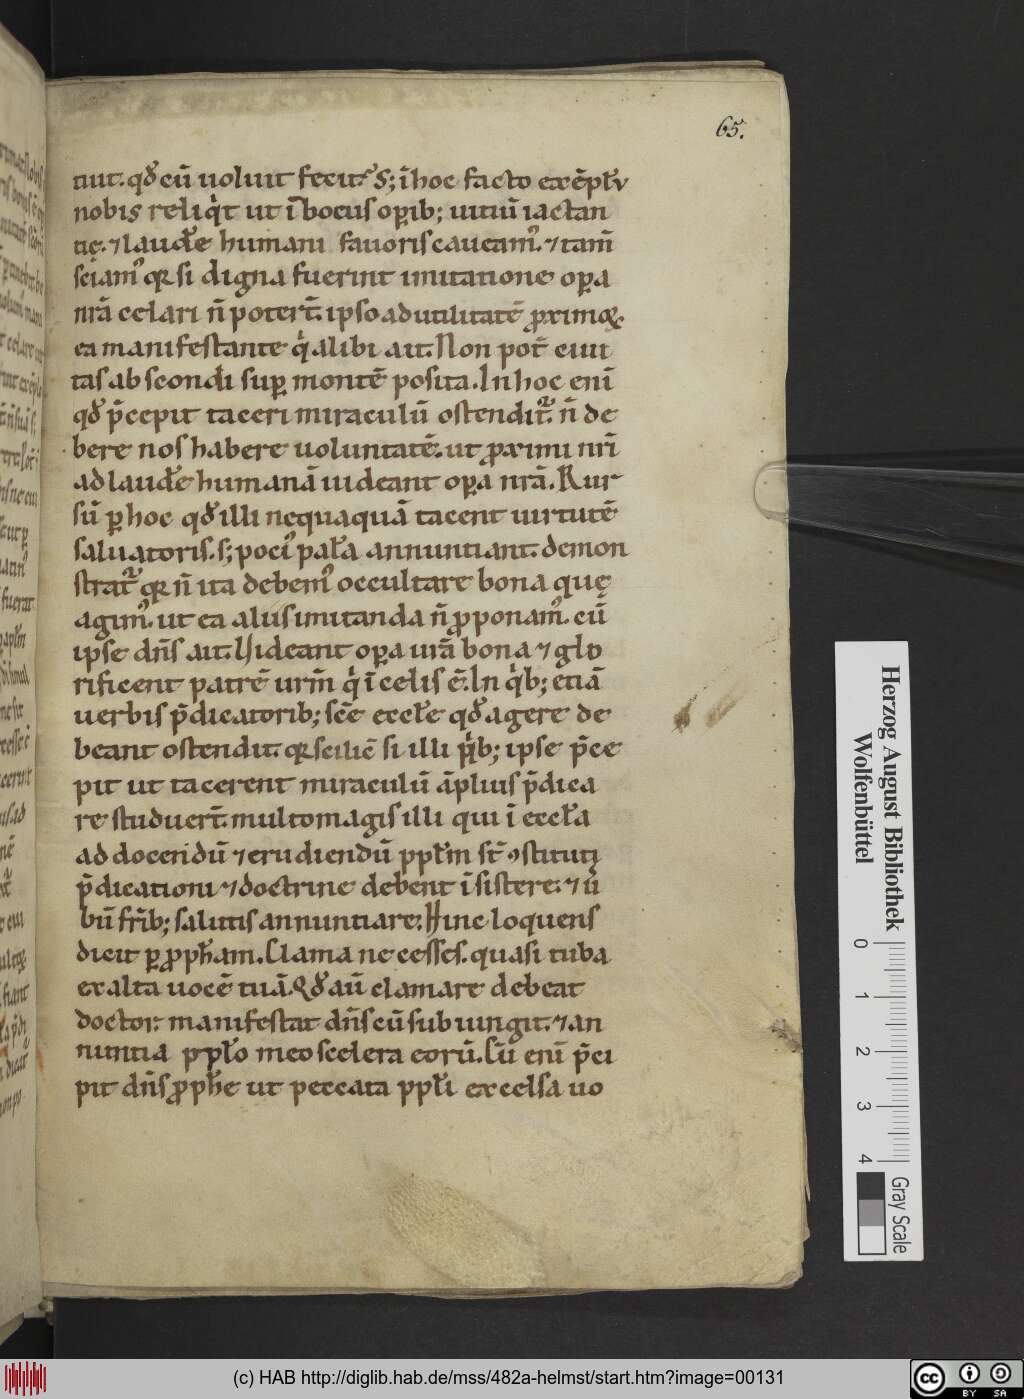 65.
nuit. qđ cū uoluit fecit? S; ī hoc facto exēplū
nobis reliqͥt ut ī bocus oꝑib; uitiū iactan
tię. ⁊ laudˀe humani fauoris caueamꝰ. ⁊ tam̄
sciamꝰ qꝛ si digna fuerint imitatione oꝑa
nrā celari n̄ poterˀt. ipso ad utilitatē ꝓximoꝝ.
ea manifestante qͥ alibi ait. Non potˀ ciui
tas abscondi suꝑ montē posita. In hoc eni̅
qđ p̄cepit taceri miraculū ostenditᷣ. n̄ de
bere nos habere uoluntatē. ut ꝓximi nr̄i
ad laudˀe humanā uideant oꝑa nrā. Rur
sū ꝑ hoc qđ illi nequaquā tacent uirtutē
saluatoris. s; pociꝰ palˀa annuntiant. demon
stratᷣ qꝛ n̄ ita debemꝰ occultare bona quę
agimꝰ. ut ea aliis imitanda n̄ ꝓponamꝰ. cū
ipse dn̄s ait. Uideant oꝑa urā bona ⁊ glo
rificent patrē urm̄ qͥ ī celis ē. In qͥb; etiā
uerbis p̄dicatorib; scē ecclˀe qđ agere de
beant ostendit. qꝛ scilic̄ si illi qͥb; ipse p̄ce
pit ut tacerent miraculū āpliuˢ p̄dica
re studuerˀt. multo magis illi qui ī ecclˀa
ad docendū ⁊ erudiendū pplˀm st̄ ꝯstituti
p̄dicationi ⁊ doctrine debent īsistere. ⁊ ū
bū fr̄ib; salutis annuntiare. Hinc loquens
dicit ꝑ ꝓphˀam. Clama ne cesses. quasi tuba
exalta uocē tuā. Qđ aū clamare debeat
doctor. manifestat dn̄s cū subiungit. ⁊ an
nuntia pplˀo meo scelera eorū. Cū eni̅ p̄ci
pit dn̄s ꝓphˀe ut peccata pplˀi excelsa uo
Herzog August Bibliothek
Wolfenbüttel
0 1 2 3 4
Gray Scale
(c) HAB http://diglib.hab.de/mss/482a-helmst/start.htm?image=00131
cc BY SA